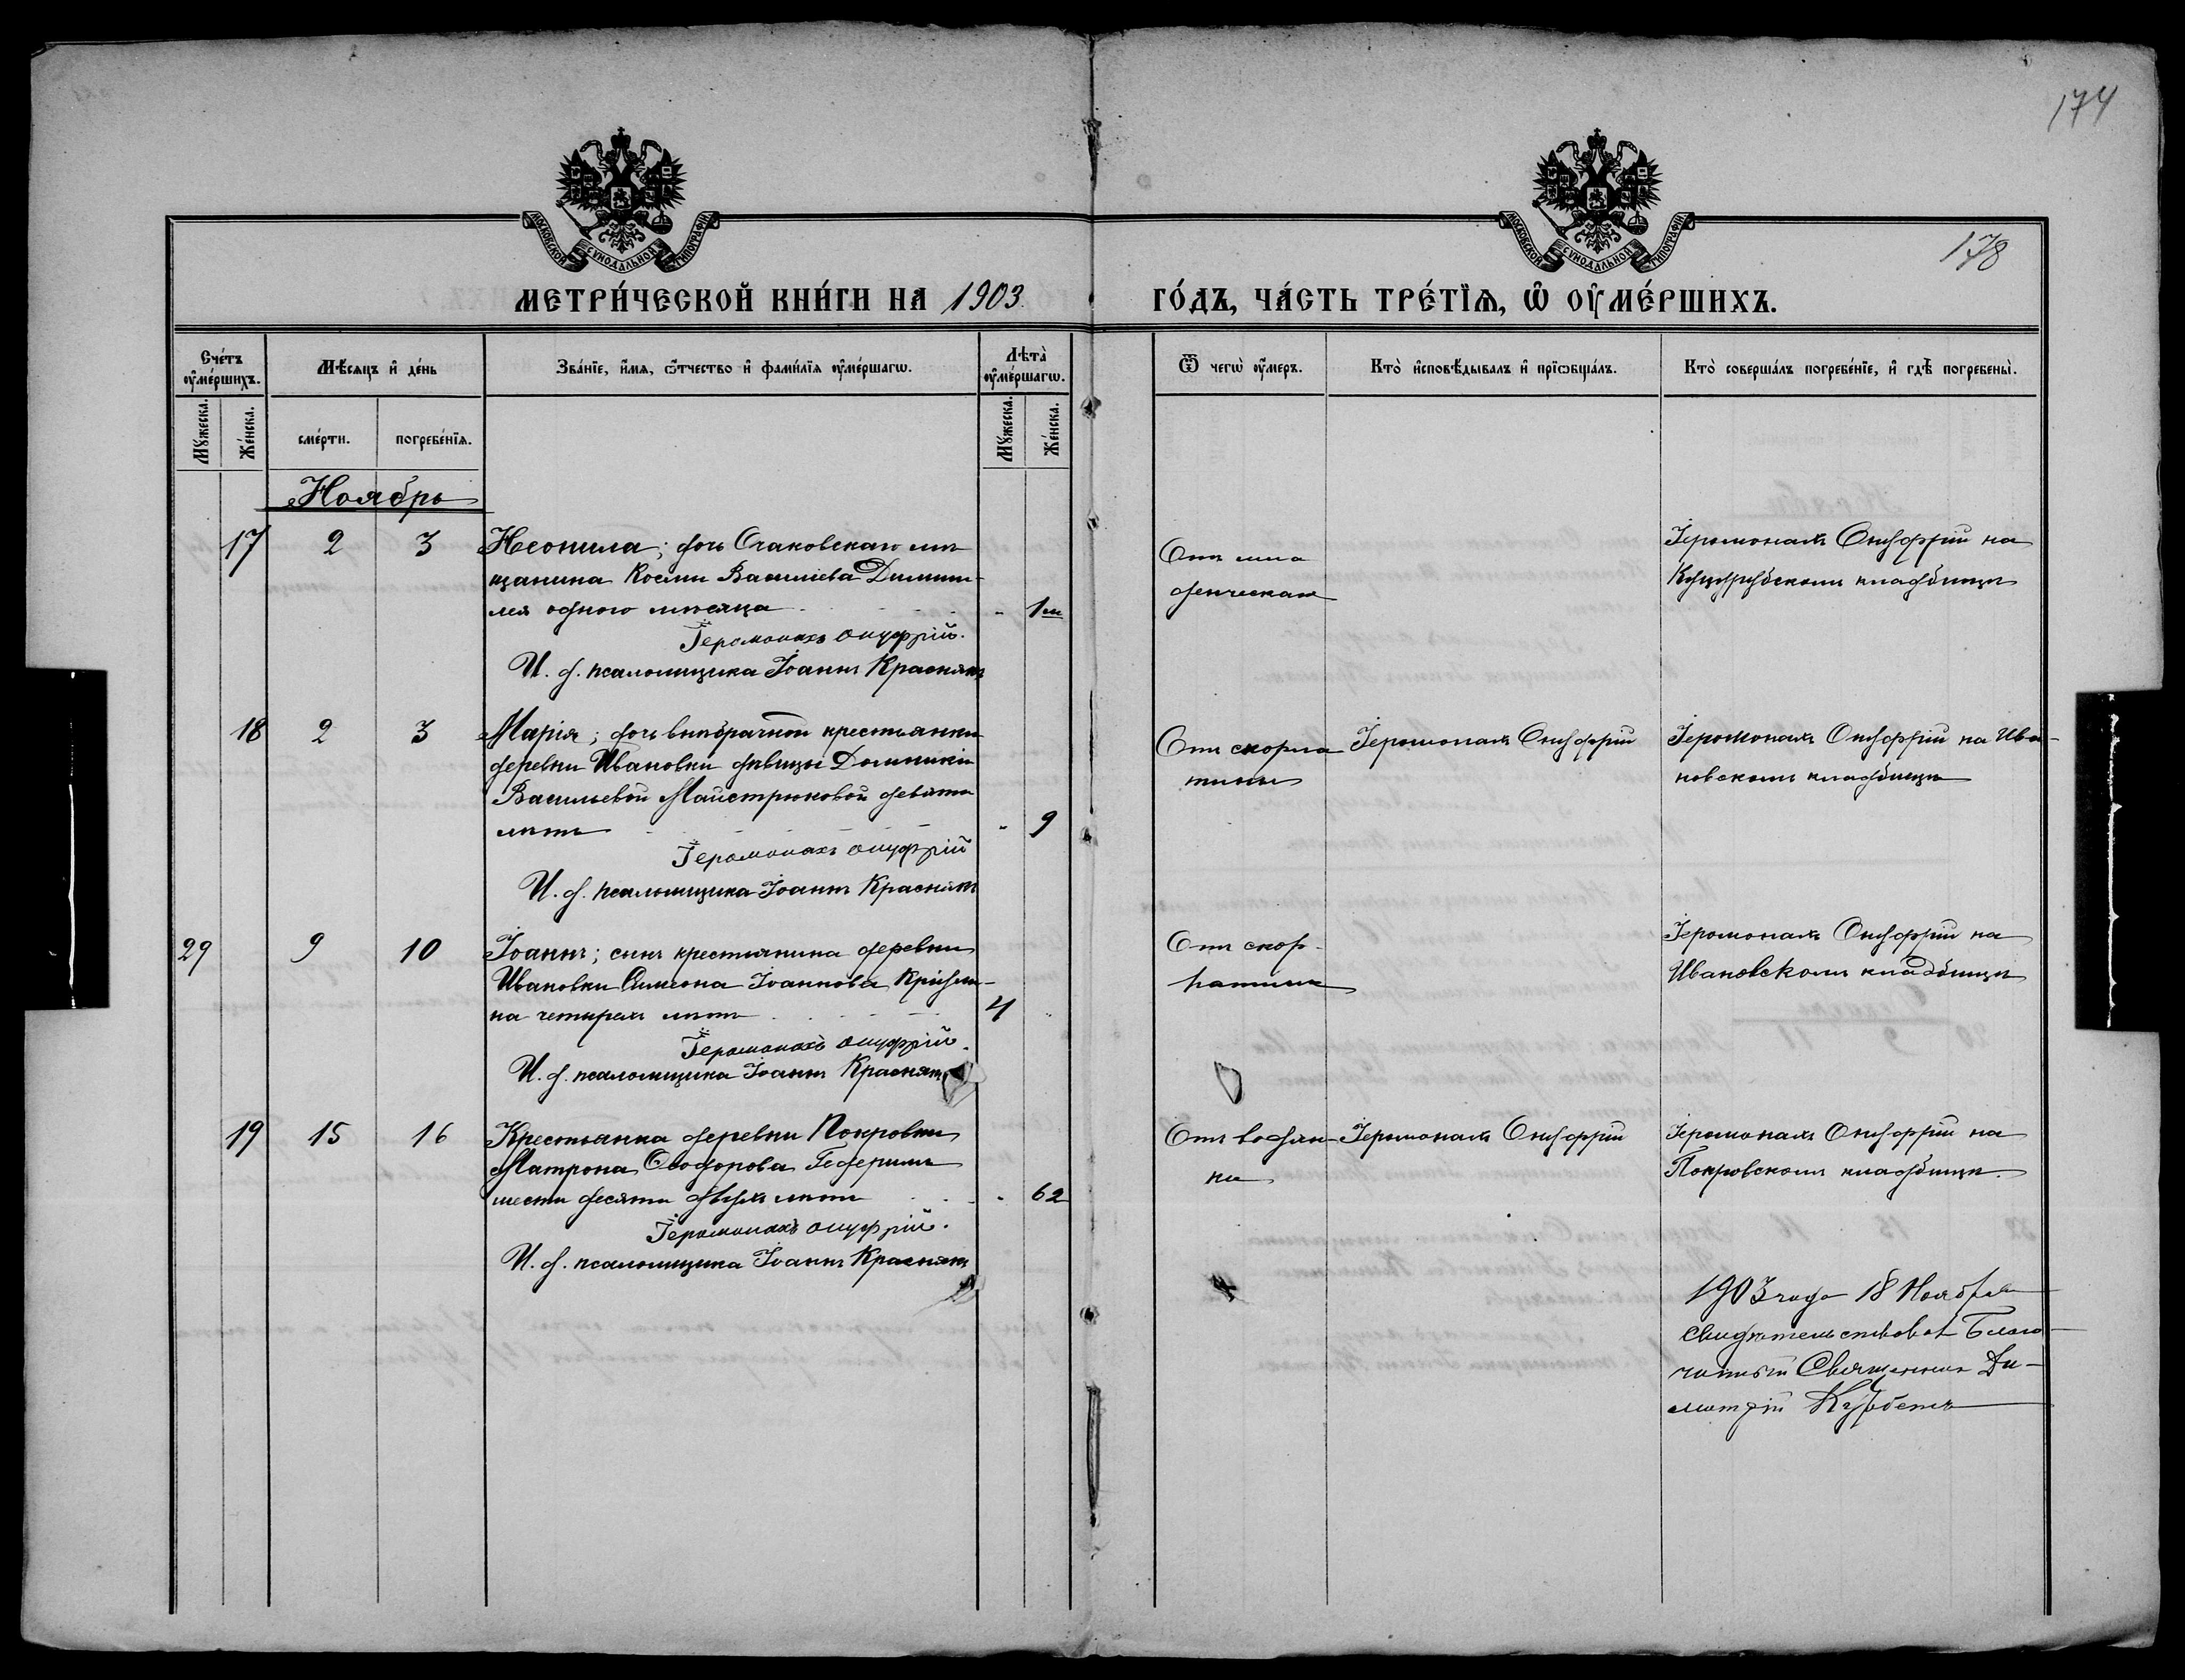 174
178
МОСКОВСКОЙ СѴНОДАЛЬНОЙ ТИПОГРАФІИ
МОСКОВСКОЙ СѴНОДАЛЬНОЙ ТИПОГРАФІИ
МЕТРИ́ЧЕСКОЙ КНИ́ГИ НА 1903 ГО́ДЪ, ЧА́СТЬ ТРЕ́ТЇѦ, Ѡ҆ ОУ҆МЕ́РШИХЪ.
Сче́тъ оу҆ме́ршихъ.
Мѣ́сѧцъ и҆ де́нь
Зва́нїе, и҆́мѧ, ѻ҆́тчество и҆ фами́лїѧ оу҆ме́ршагѡ.
Лѣта̀ оу҆ме́ршагѡ.
Ѿ чегѡ̀ оу҆́меръ.
Кто̀ и҆сповѣ́дывалъ и҆ прїѻбща́лъ.
Кто̀ соверша́лъ погребе́нїе, и҆ гдѣ̀ погребены̀.
Мꙋ́жеска.
Же́нска.
сме́рти.
погребе́нїѧ.
Мꙋ́жеска.
Же́нска.
Ноябрь
17 2 3 Неонила; дочь Очаковскаго мѣ-
щанина Космы Василіева
лея одного мѣсяца - 1 м
Іеромонахъ Онуфрій.
И. д. псаломщика Іоаннъ Краснякъ
Отъ мла
денческой
Іеромонахъ Онуфрій на
Куцурубскомъ кладбищѣ
18 2 3 Марія; дочь внѣбрачной крестьянки
деревни Ивановки дѣвицы Домникіи
Васильевой Майстрюковой девяти
лѣтъ - 9
Іеромонахъ Онуфрій
И. д. псаломщика Іоаннъ Краснякъ
Отъ скорла
тины
Іеромонахъ Онуфрій
Іеромонахъ Онуфрій на Ива-
новскомъ кладбищѣ
29 9 10 Іоаннъ; сынъ крестьянина деревни
Ивановки Симеона Іоаннова
на четырехъ лѣтъ 4
Іеромонахъ Онуфрій.
И. д. псаломщика Іоаннъ Краснякъ
Отъ
Іеромонахъ Онуфрій на
Ивановскомъ кладбищѣ
19 15 16 Крестьянка деревни Покровки
Матрона Ѳеодорова
шести десяти двухъ лѣтъ - 62
Іеромонахъ Онуфрій.
И. д. псаломщика Іоаннъ Краснякъ
Отъ водян-
ки
Іеромонахъ Онуфрій
Іеромонахъ Онуфрій на
Покровскомъ кладбищѣ.
1903 года 18 Ноября
свидѣтельствовалъ Благо-
чинный Священникъ Ди-
митрій